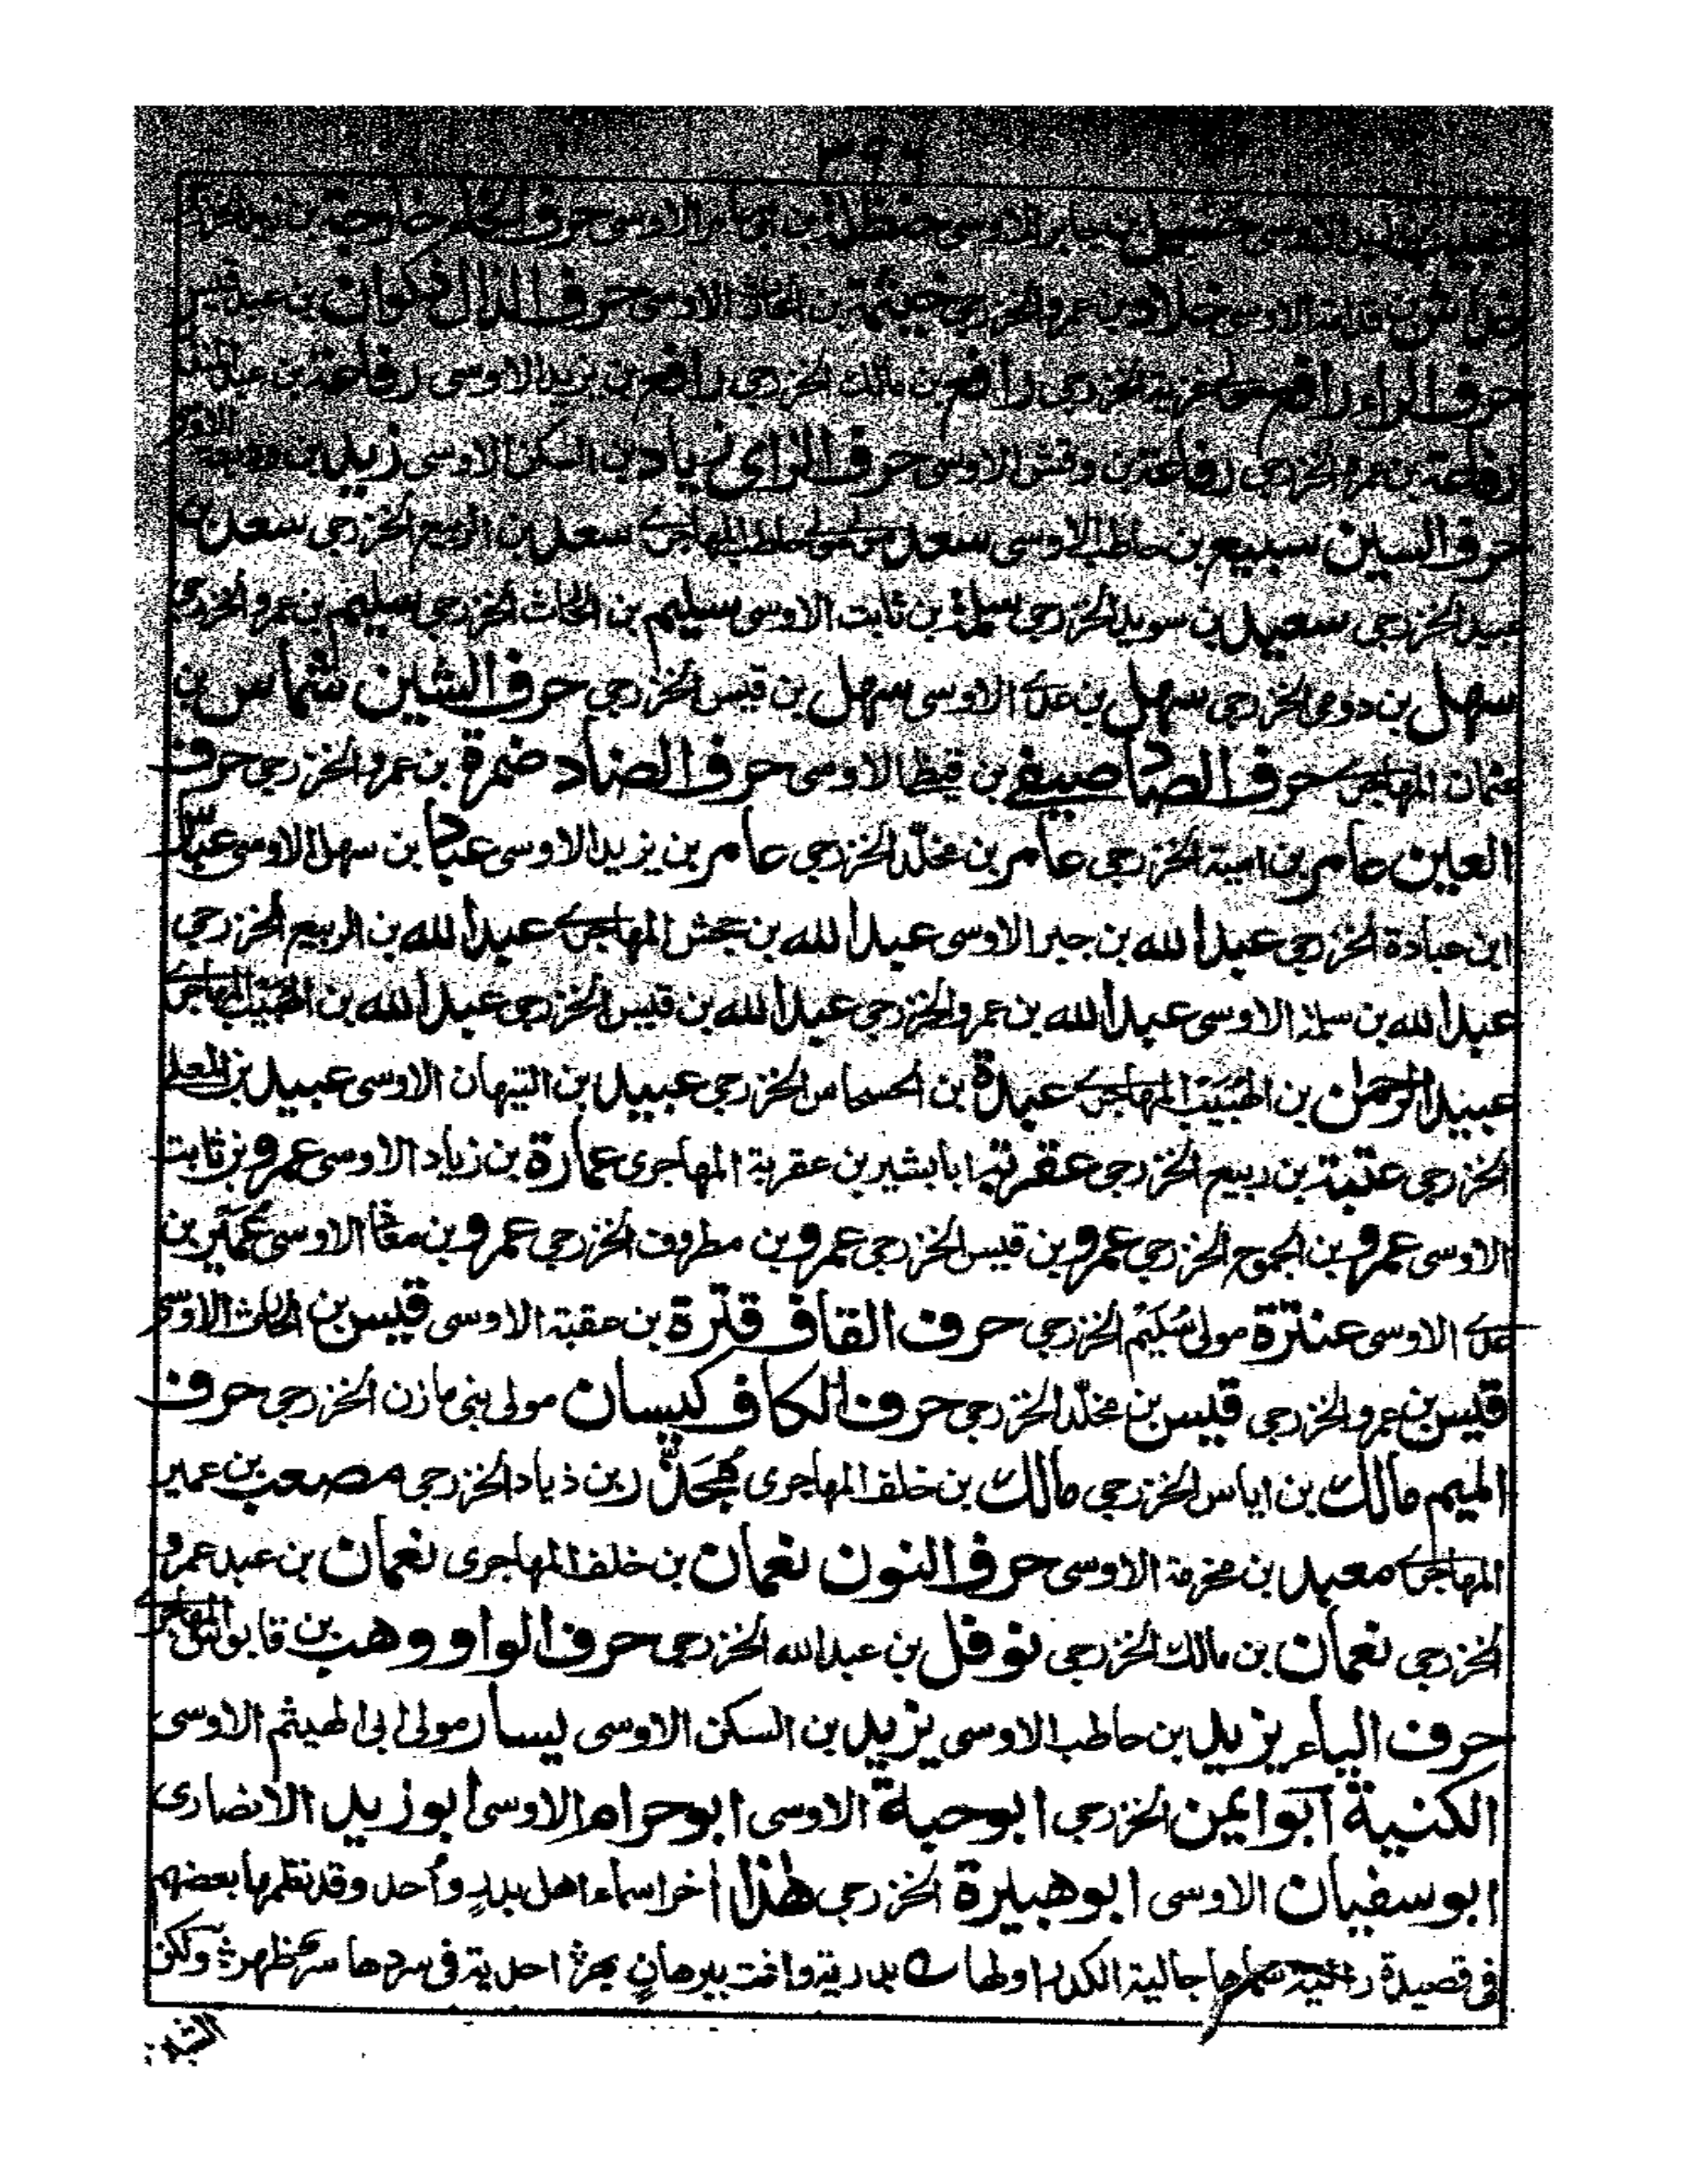 ٣٩٤
حبيب بن زيد الاوسى حسيل بن جابر الاوسى حنظلة بن ابى عامر الاوسى حرف الخاء خارجة بن زيد الخزرجى
خداش بن قتادة الاوسى خلاد بن عمرو الخزرجى خيثمة بن الحارث الاوسى حرف الذال ذكوان بن عبد قيس
حرف الراء رافع مولى غزية الخزرجى رافع بن مالك الخزرجى رافع بن يزيد الاوسى رفاعة بن عبد المنذر الاوسى
رفاعة بن عمرو الخزرجى رفاعة بن وقش الاوسى حرف الزاى زياد بن السكن الاوسى زيد بن وديعة
حرف السين سبيع بن حاطب الاوسى سعد مولى حاطب المهاجرى سعد بن الربيع الخزرجى سعد بن
عبيد الخزرجى سعيد بن سويد الخزرجى سلمة بن ثابت الاوسى سليم بن الحارث الخزرجى سليم بن عمرو الخزرجى
سهل بن رومى الخزرجى سهل بن عدى الاوسى سهل بن قيس الخزرجى حرف الشين شماس بن
عثمان المهاجرى حرف الصاد صيفى بن قيظا الاوسى حرف الضاد ضمرة بن عمرو الخزرجى حرف
العين عامر بن امية الخزرجى عامر بن مخلّد الخزرجى عامر بن يزيد الاوسى عباد بن سهل الاوسى عباس
ابن عبادة الخزرجى عبد الله بن جبير الاوسى عبد الله بن جحش المهاجرى عبد الله بن الربيع الخزرجى
عبد الله بن سلمة الاوسى عبد الله بن عمرو الخزرجى عبد الله بن قيس الخزرجى عبد الله بن الهبيب المهاجرى
عبيد الرحمن بن الهبيب المهاجرى عبدة بن الحسحاس الخزرجى عبيد بن التيهان الاوسى عبيد بن المعلى
الخزرجى عتبة بن ربيع الخزرجى عقربة ابا بشير بن عقربة المهاجرى عمارة بن زياد الاوسى عمرو بن ثابت
الاوسى عمرو بن الجموح الخزرجى عمرو بن قيس الخزرجى عمرو بن مطروف الخزرجى عمرو بن معاذ الاوسى عُمَير بن
عدى الاوسى عنترة مولى سُلَيْم الخزرجى حرف القاف قرة بن عقبة الاوسى قيس بن الحارث الاوسى
قيس بن عمرو الخزرجى قيس بن مخلّد الخزرجى حرف الكاف كيسان مولى بنى مازن الخزرجى حرف
الميم مالك بن اياس الخزرجى مالك بن خلف المهاجرى مُجَذَّر بن ذياد الخزرجى مصعب بن عمير
المهاجرى معبد بن مخرمة الاوسى حرف النون نعمان بن خلف المهاجرى نعمان بن عبد عمرو
الخزرجى نعمان بن مالك الخزرجى نوفل بن عبد الله الخزرجى حرف الواو وهب بن قابوس المهاجرى
حرف الياء يزيد بن حاطب الاوسى يزيد بن السكن الاوسى يسار مولى ابى الهيثم الاوسى
الكنية ابو ايمن الخزرجى ابو حبة الاوسى ابو حرام الاوسى ابو زيد الانصارى
ابو سفيان الاوسى ابو هبيرة الخزرجى هٰذا اٰخر اسماء اهل بدرٍ واُحد وقد نظمها بعضهم
فى قصيدة جالية الكدر اولها بدرية وافت ببرهانٍ احدية فى سردها ولكن